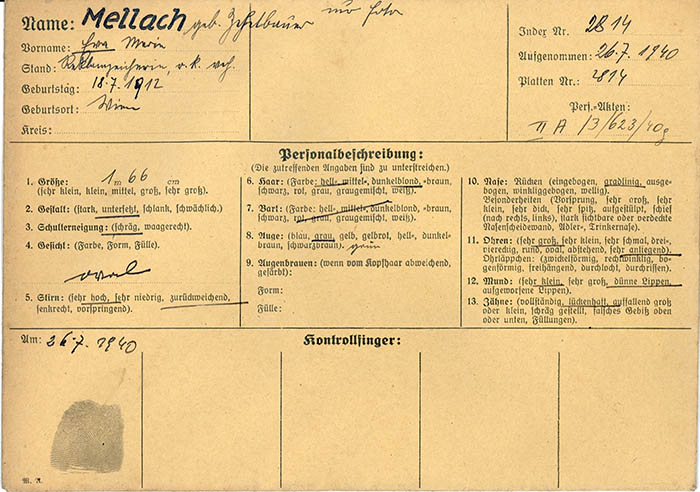 Name: Mellach geb. Zehetbauer nur Foto
Vorname: Eva Maria
Stand: Reklamezeichnerin, r. k. verh.
Geburtstag: 18.7.1912
Geburtsort: Wien
Kreis:
Index Nr.: 2814
Aufgenommen: 26.7.1940
Platten Nr.: 2814
Pers.-Akten:
II A /3/623/40g
Personalbeschreibung:
(Die zutreffenden Angaben sind zu unterstreichen.)
1. Größe: 1 m 66 cm
(sehr klein, klein, mittel, groß, sehr groß).
2. Gestalt: (stark, untersetzt, schlank, schwächlich.)
3. Schulterneigung: (schräg, waagerecht.)
4. Gesicht: (Farbe, Form, Fülle).
oval
5. Stirn: (sehr hoch, sehr niedrig, zurückweichend,
senkrecht, vorspringend).
6. Haar: (Farbe: hell-, mittel-, dunkelblond, -braun,
schwarz, rot, grau, graugemischt, weiß).
7. Bart: (Farbe: hell-, mittel-, dunkel-braun,
schwarz, rot, grau, graugemischt, weiß).
8. Auge: (blau, grau, gelb, gelbrot, hell-, dunkel-
braun, schwarzbraun). grün
9. Augenbrauen: (wenn vom Kopfhaar abweichend,
gefärbt):
Form:
Fülle:
10. Nase: Rücken (eingebogen, gradlinig, ausge-
bogen, winkliggebogen, wellig).
Besonderheiten (Vorsprung, sehr groß, sehr
klein, sehr dick, sehr spitz, aufgestülpt, schief
(nach rechts, links), stark sichtbare oder verdeckte
Nasenscheidewand, Adler-, Trinkernase).
11. Ohren: (sehr groß, sehr klein, sehr schmal, drei-
viereckig, rund, oval, abstehend, sehr anliegend).
Ohrläppchen: (zwickelförmig, rechtwinklig, bo-
genförmig, freihängend, durchlocht, durchrissen).
12. Mund: (sehr klein, sehr groß, dünne Lippen,
aufgeworfene Lippen).
13. Zähne: (vollständig, lückenhaft, auffallend groß
oder klein, schräg gestellt, falsches Gebiß oben
oder unten, Füllungen).
Am: 26.7.1940
Kontrollfinger:
M. A.